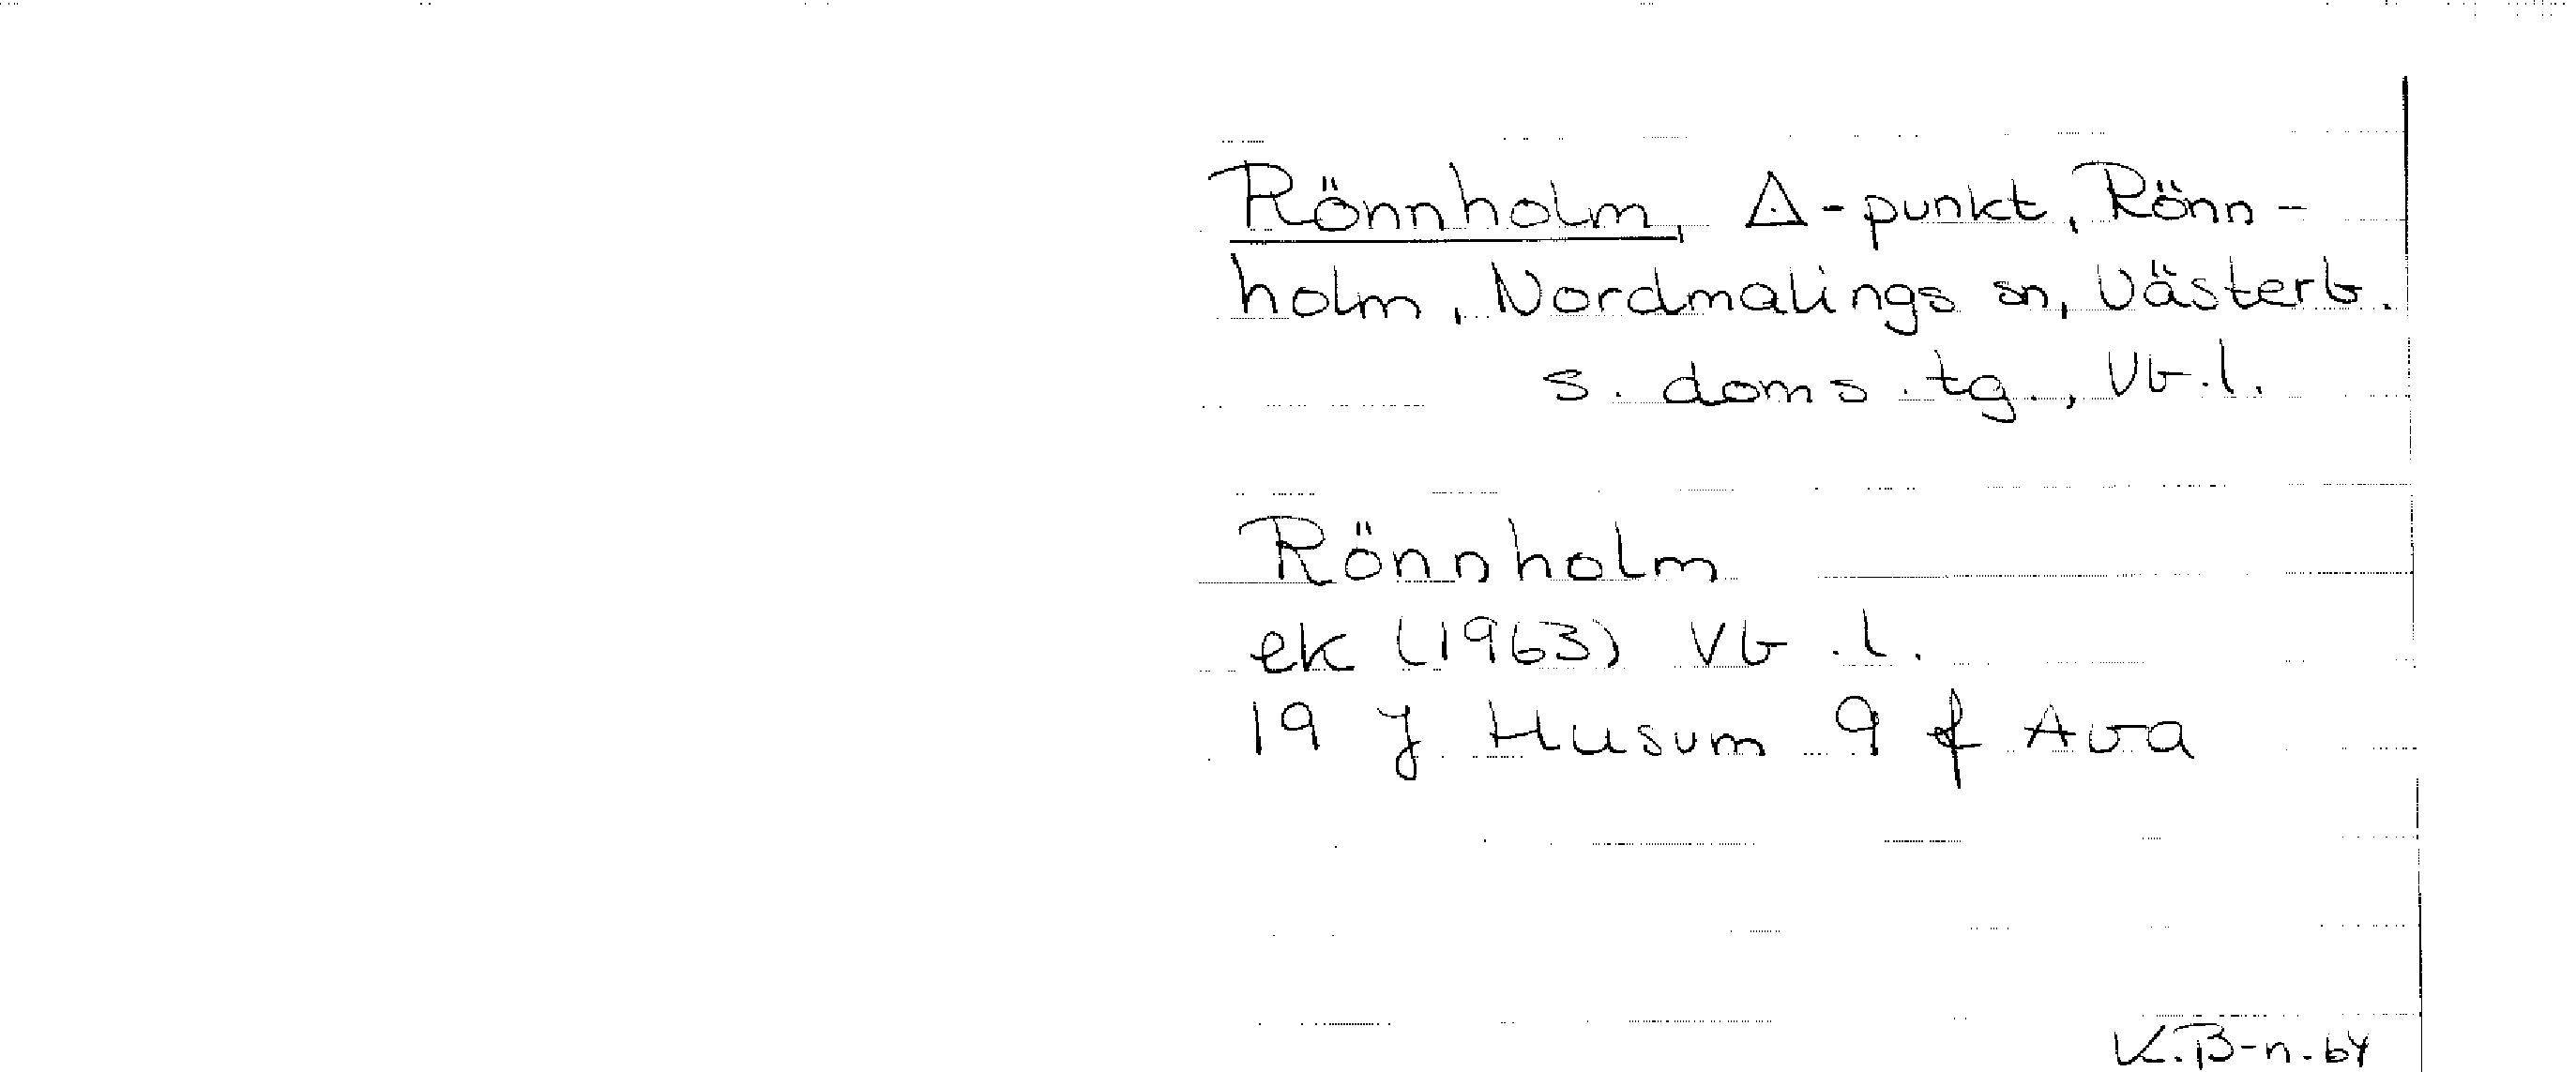 Rönnholm, △-punkt, Rönn-
holm, Nordmalings sn, Västerb.
s. doms. tg., Vb. l.
Rönnholm
ek (1963) Vb. l.
19 J Husum 9 f Ava
K.B-n. 64